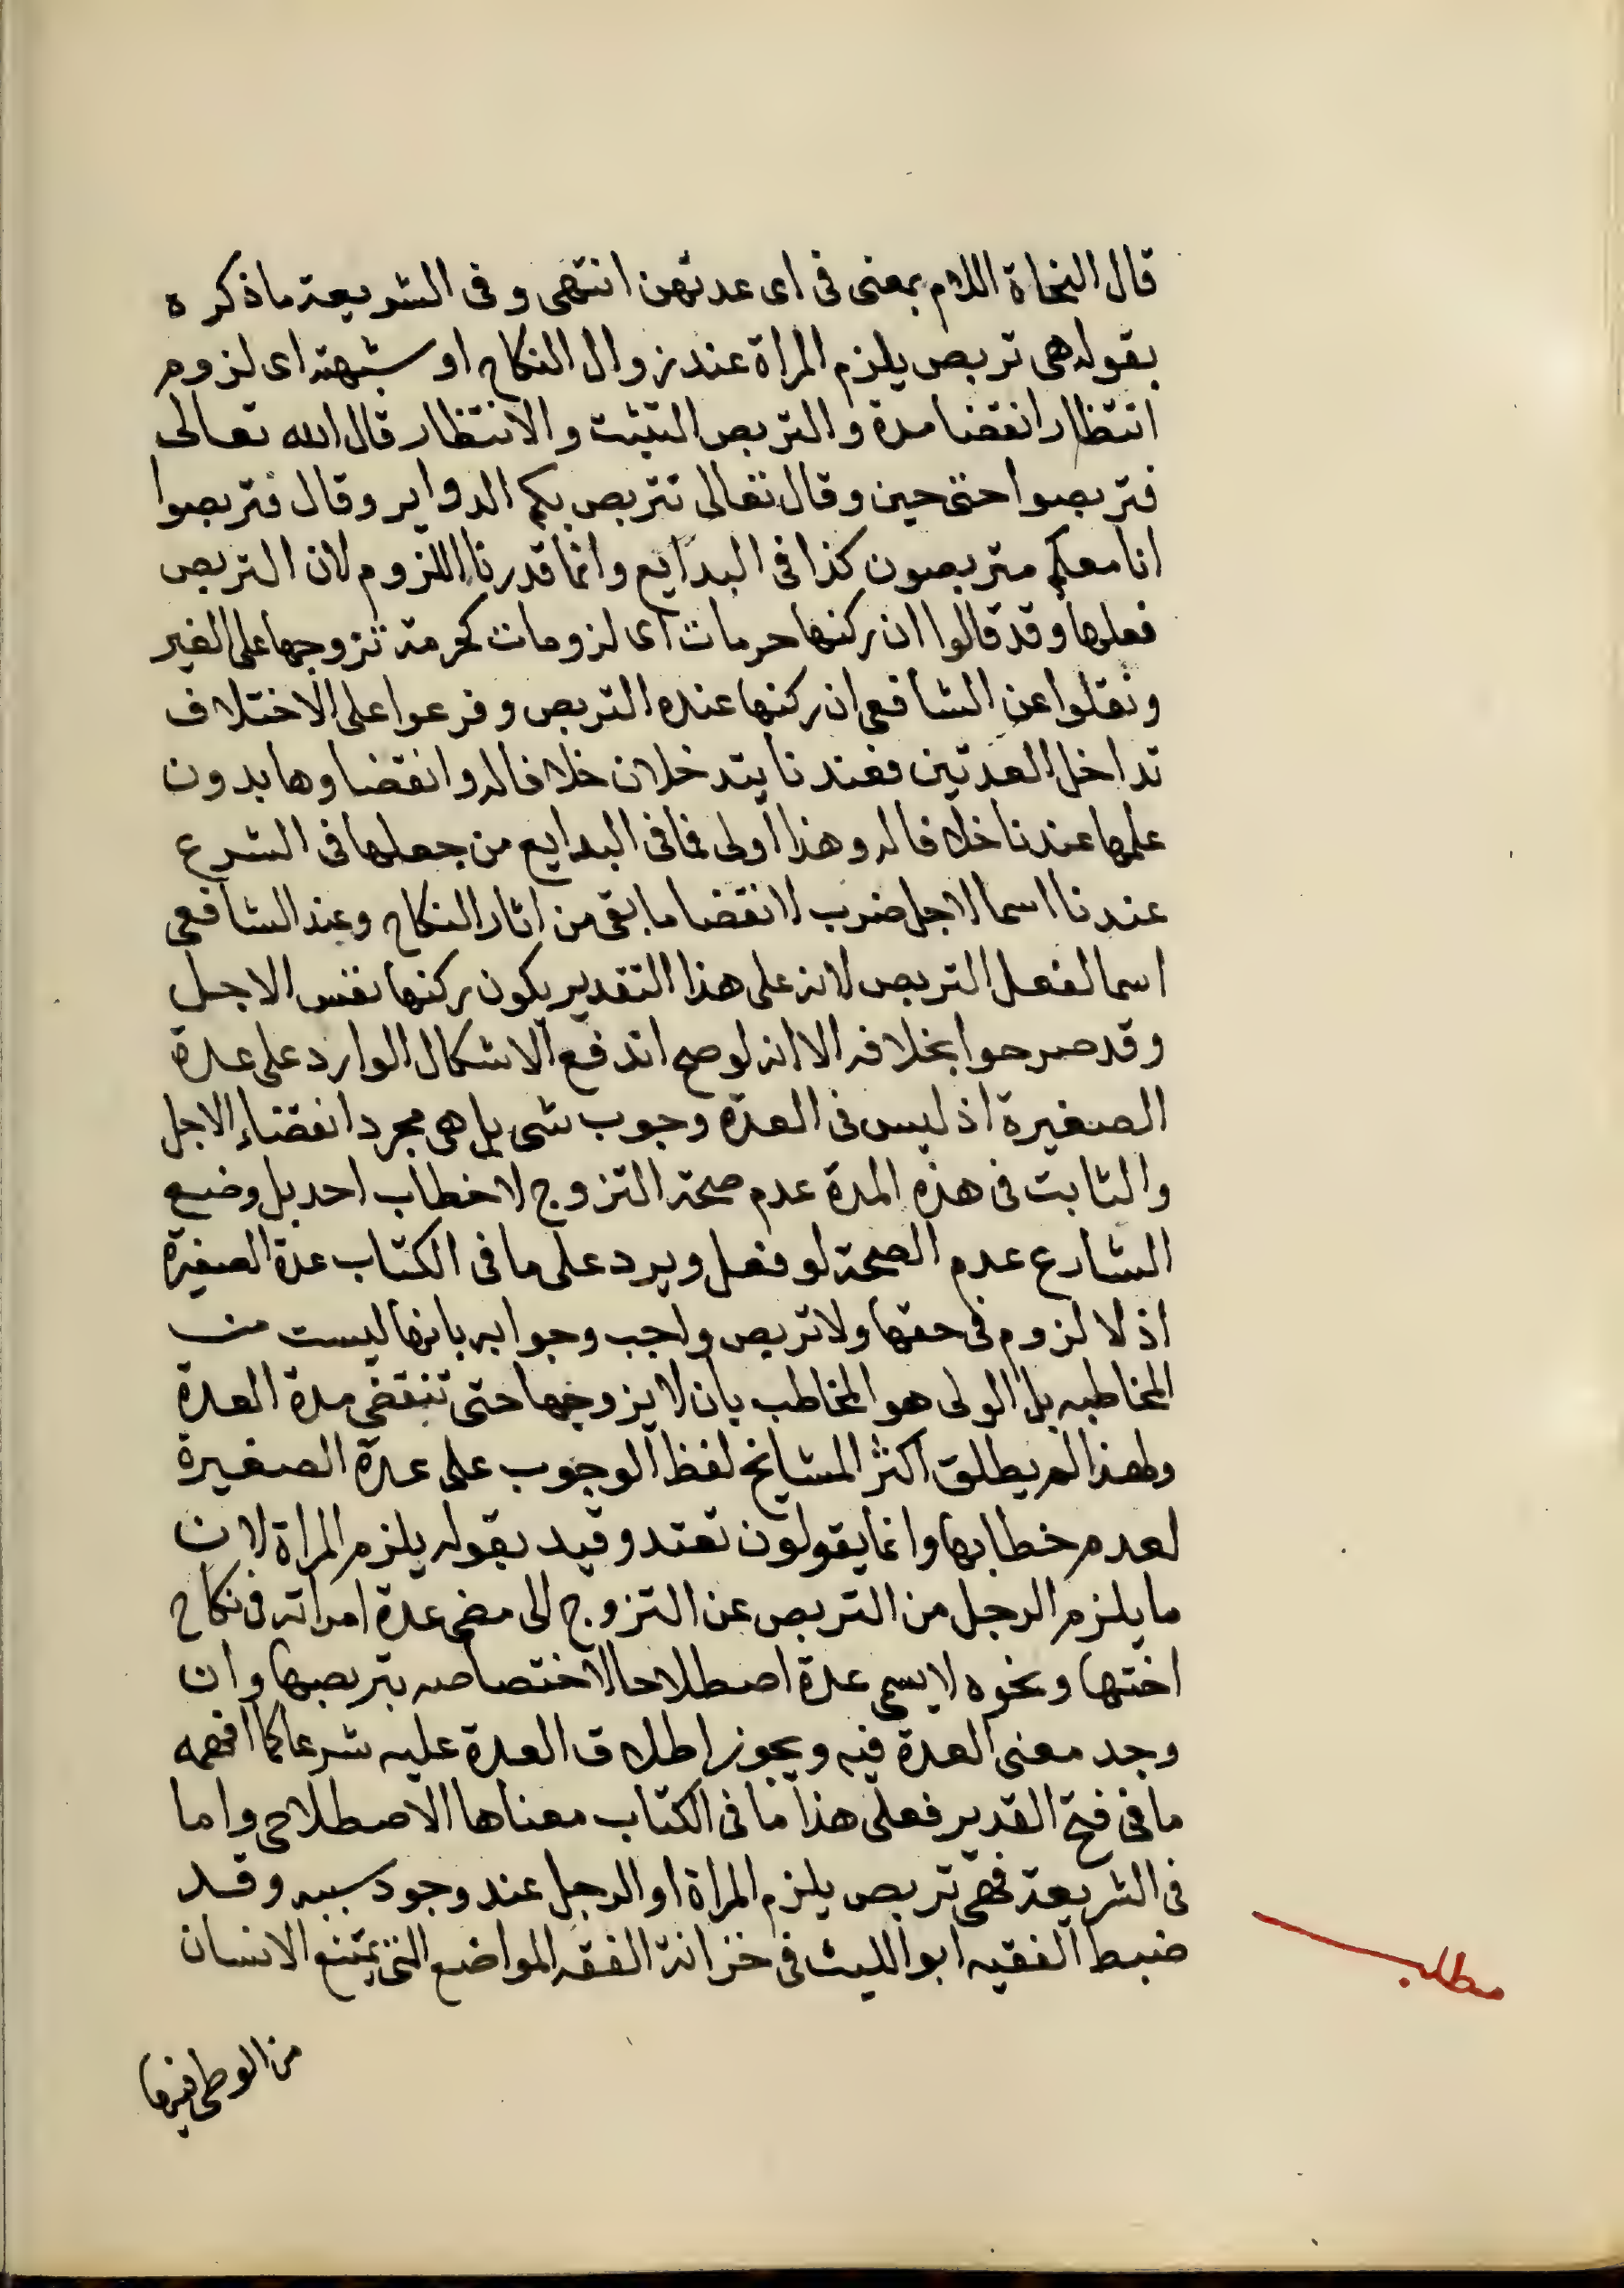 قال النحاة اللام بمعنى فى اى عدتهن انتهى وفى الشريعة ماذكره
بقوله هى تربص يلزم المراة عند زوال النكاح او شبهته اى لزوم
انتظار انقضا مدة والتربص التثبت والانتظار قال الله تعالى
فتربصوا حتى حين وقال تعالى تتربص بكم الدواير وقال فتربصوا
انا معكم متربصون كذا فى البدايع وانما قدرنا اللزوم لان التربص
فعلها وقد قالوا ان ركنها حرمات اى لزومات كحرمة تزوجها على الغير
ونقلوا عن الشافعى ان ركنها عنده التربص وفرعوا على الاختلاف
تداخل العدتين فعندنا يتدخلان خلافا له وانقضاوها بدون
علمها عندنا خلافا له وهذا اولى مما فى البدايع من جعلها فى الشرع
عندنا اسما لاجل ضرب لانقضا ما بقى من اثار النكاح وعند الشافعى
اسما لفعل التربص لانه على هذا التقدير يكون ركنها نفس الاجل
وقد صرحوا بخلافه الا انه لو صح اندفع الاشكال الوارد على عدة
الصغيرة اذ ليس فى العدة وجوب شى بل هى مجرد انقضاء الاجل
والثابت فى هذه المدة عدم صحة التزوج لا خطاب احد بل وضع
الشارع عدم الصحة لو فعل ويرد على ما فى الكتاب عدة الصغيرة
اذ لا لزوم فى حقها ولا تربص واجب وجوابه بانها ليست من
المخاطبه بل الولى هو المخاطب بان لا يزوجها حتى تنقضى مدة العدة
ولهذا لم يطلق اكثر المشايخ لفظ الوجوب على عدة الصغيرة
لعدم خطابها وانما يقولون تعتد وقيد بقوله يلزم المراة لان
ما يلزم الرجل من التربص عن التزوج الى مضى عدة امراته فى نكاح
اختها ونحوه لا يسمى عدة اصطلاحا لاختصاصه بتربصها وان
وجد معنى العدة فيه ويجوز اطلاق العدة عليه شرعا كما افهمه
ما فى فتح القدير فعلى هذا ما فى الكتاب معناها الاصطلاحى واما
فى الشريعة فهى تربص يلزم المراة او الرجل عند وجود سببه وقد
ضبط الفقيه ابو الليث فى خزانة الفقه المواضع التى يمتنع الانسان
مطلب
من الوطى فيها